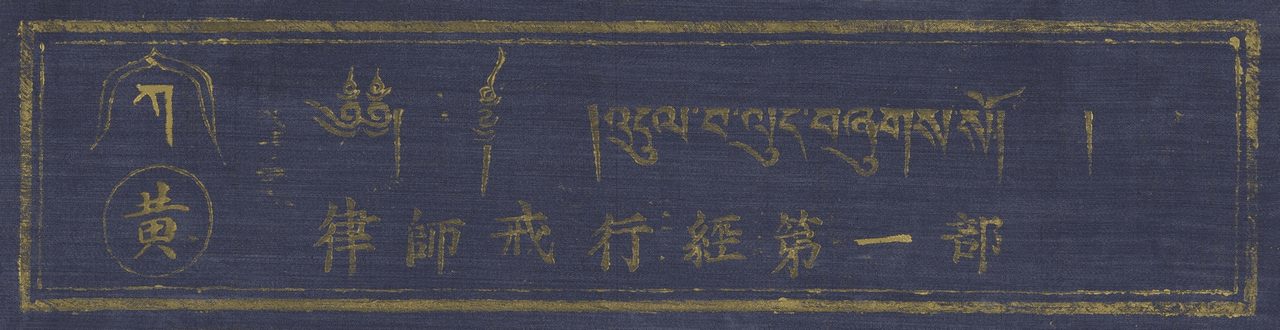 ཀ
༄༅། །འདུལ་བ་ལུང་བཞུགས་སོ། །
黄
律師戒行經第一部